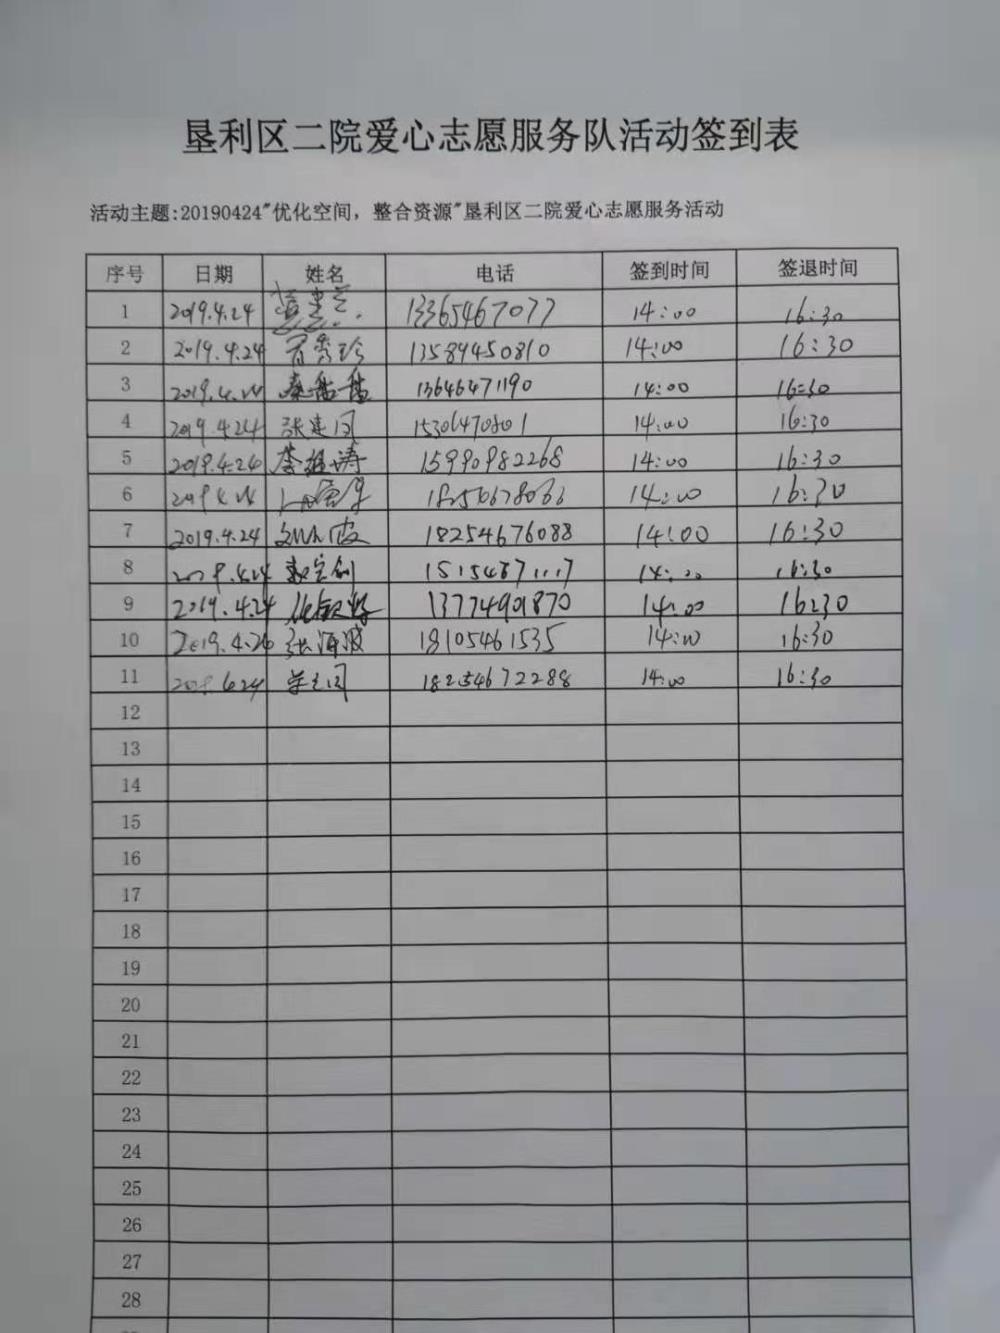 垦利区二院爱心志愿服务队活动签到表
活动主题:20190424"优化空间，整合资源"垦利区二院爱心志愿服务活动
序号 日期 姓名 电话 签到时间 签退时间
1 2019.4.24 13365467077 14:00 16:30
2 2019.4.24 秀珍 13589450810 14:00 16:30
3 2019.4.24 13646471190 14:00 16:30
4 2019.4.24 张建同 15306470801 14:00 16:30
5 2019.4.24 涛 15990982268 14:00 16:30
6 14:00 16:30
7 2019.4.24 波 18254676088 14:00 16:30
8 14:00 16:30
9 2019.4.24 13774901870 14:00 16:30
10 2019.4.26 张海波 18105461535 14:00 16:30
11 18254672288 14:00 16:30
12
13
14
15
16
17
18
19
20
21
22
23
24
25
26
27
28